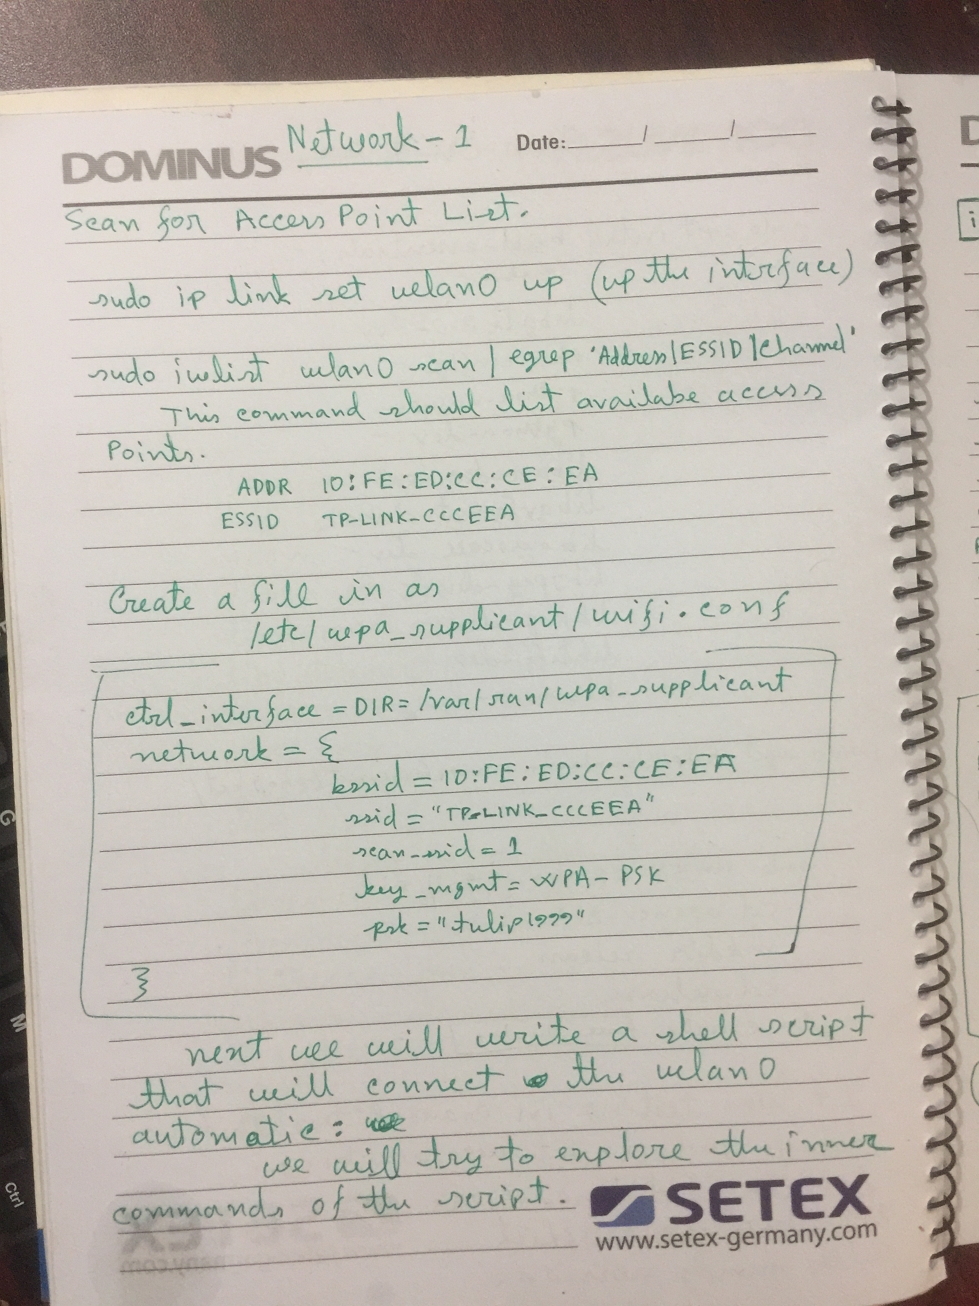 DOMINUS Network - 1 Date: / /
Scan for Access Point List.
sudo ip link set wlan0 up (up the interface)
sudo iwlist wlan0 scan | egrep 'Address|ESSID|channel'
This command should list availabe access
Points.
ADDR 10:FE:ED:CC:CE:EA
ESSID TP-LINK_CCCEEA
Create a fill in as
/etc/wpa_supplicant/wifi.conf
ctrl_interface = DIR=/var/run/wpa_supplicant
network = {
bssid = 10:FE:ED:CC:CE:EA
ssid = "TP-LINK_CCCEEA"
scan_ssid = 1
key_mgmt = WPA-PSK
psk = "tulip1999"
}
next we will write a shell script
that will connect the wlan0
automatic:
we will try to explore the inner
commands of the script.
SETEX
www.setex-germany.com
Ctrl
M
G